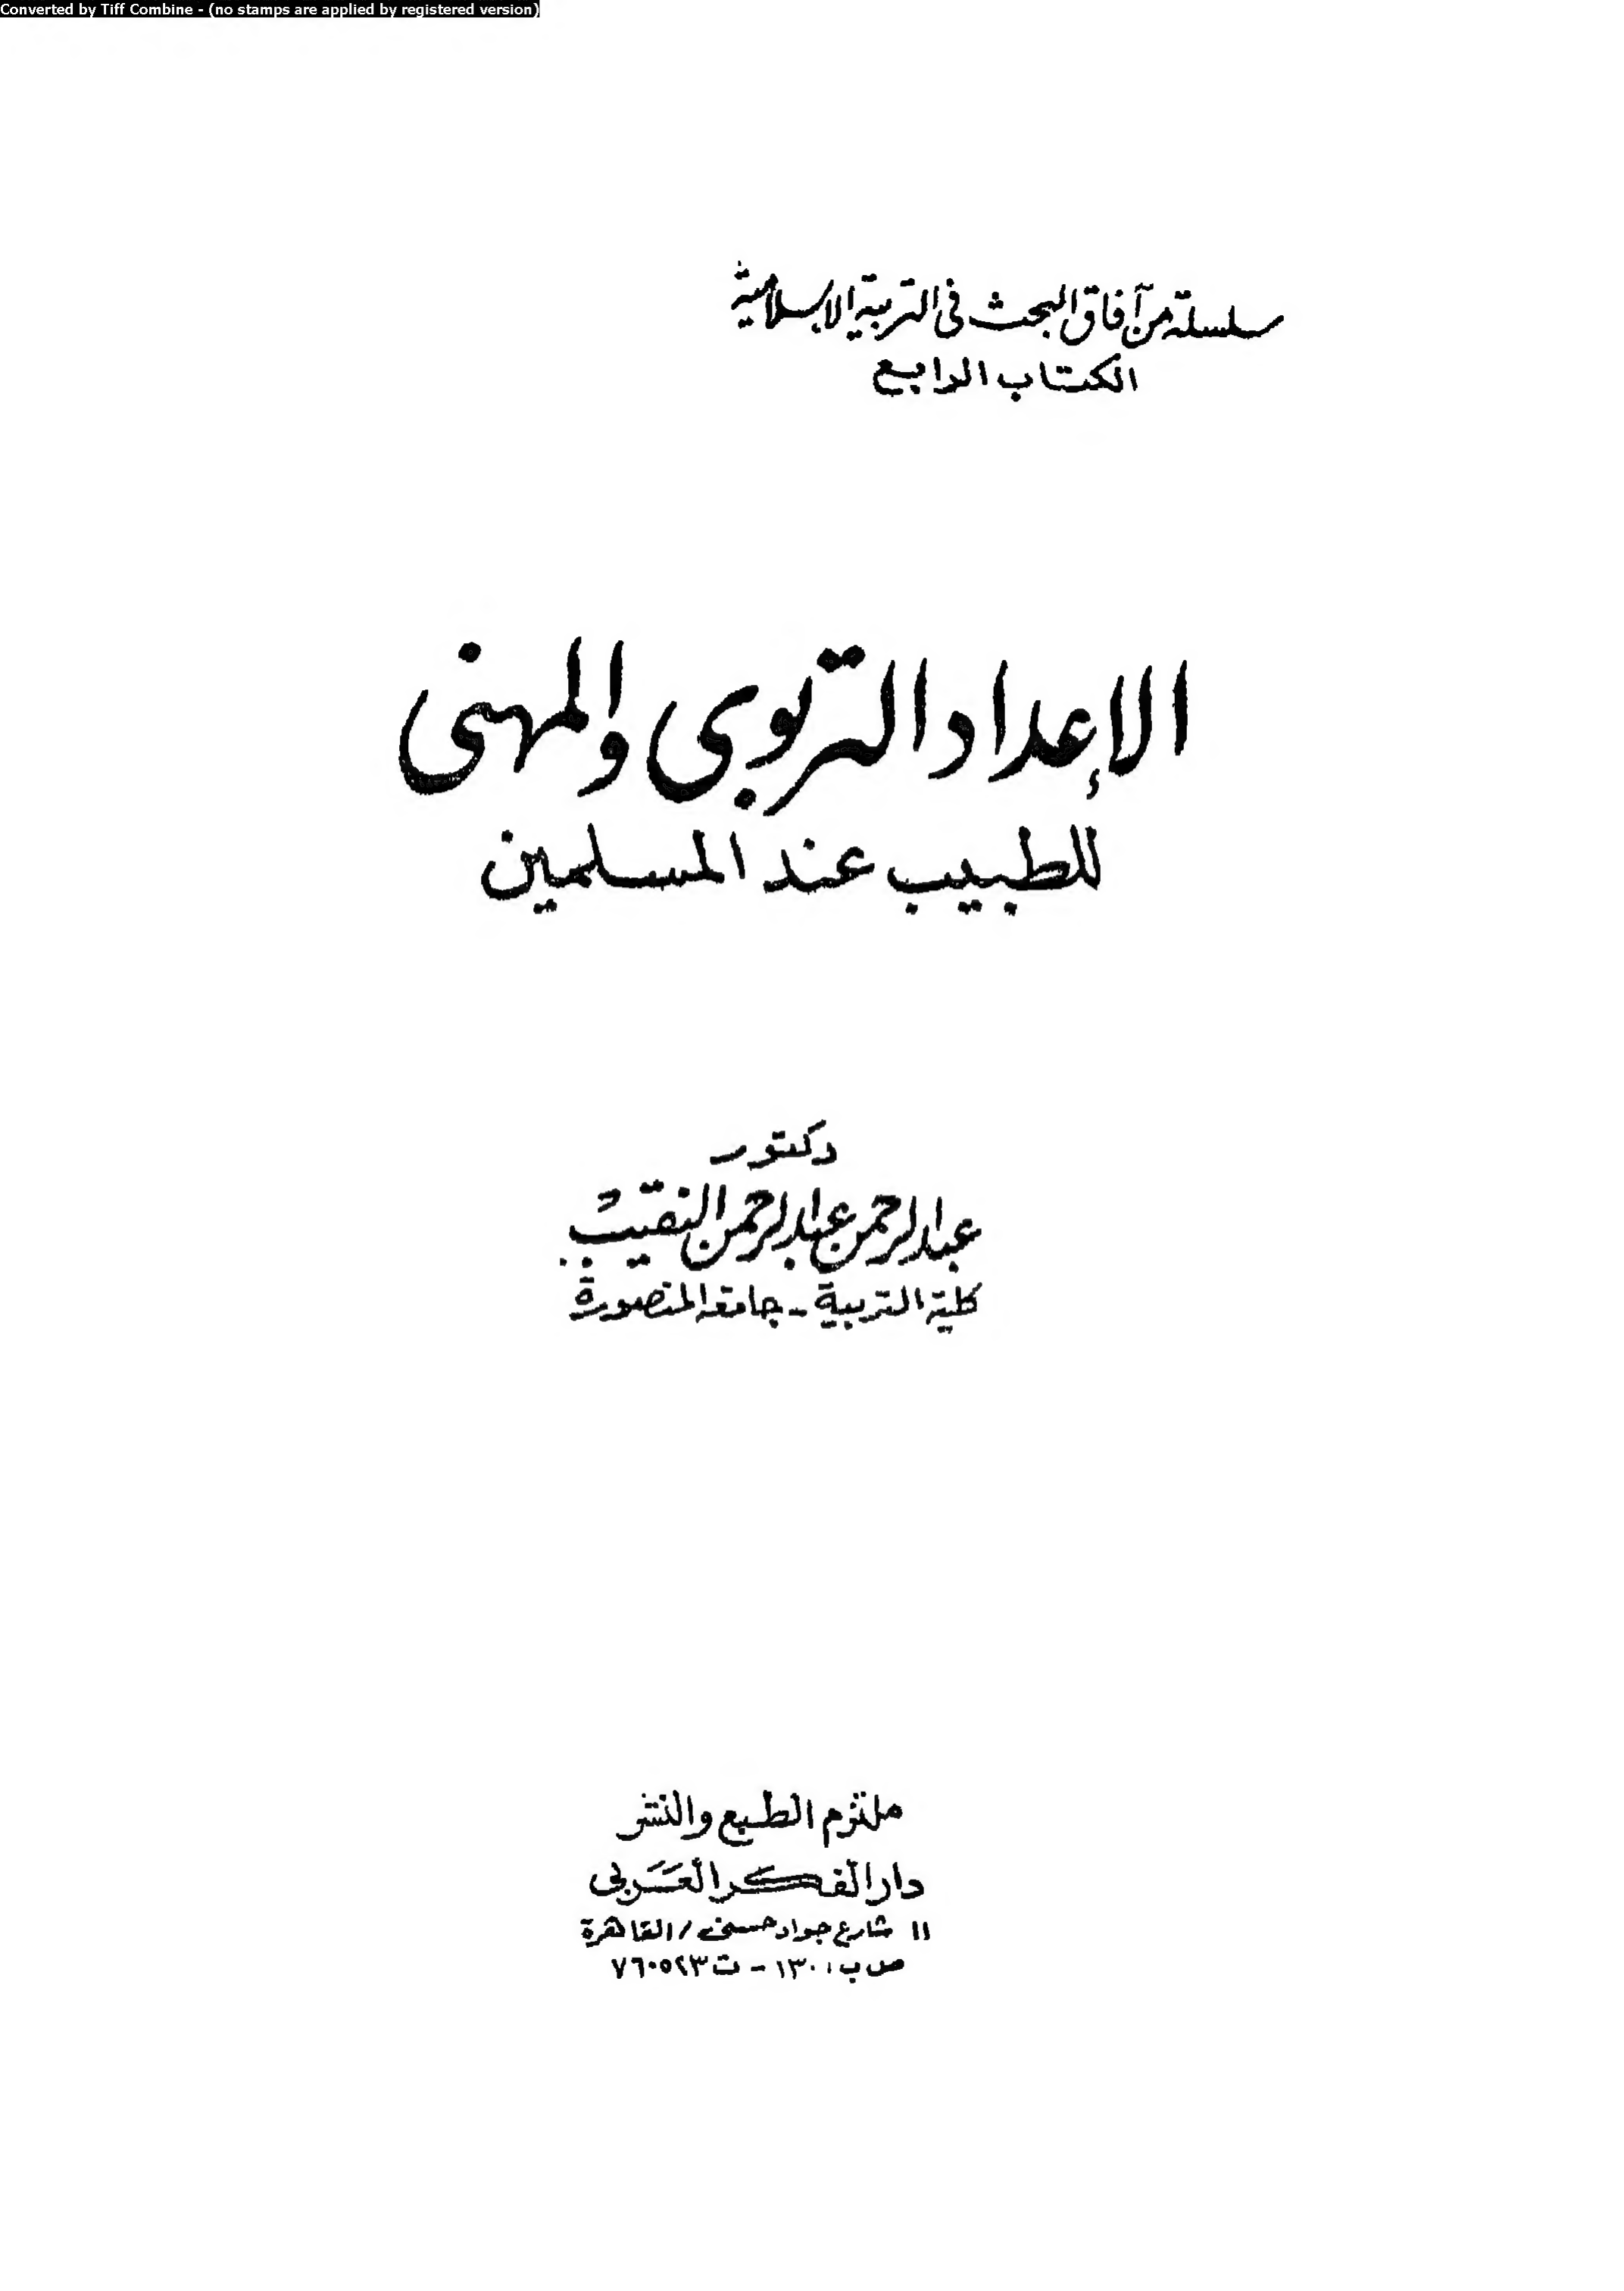 Converted by Tiff Combine - (no stamps are applied by registered version)
سلسلة من آفاق البحث فى التربية الإسلامية
الكتاب الرابع
الإعداد التربوى والمهنى
للطبيب عند المسلمين
دكتور
عبدالرحمن عبدالرحمن النقيب
كلية التربية - جامعة المنصورة
ملتزم الطبع والنشر
دار الفكر العربى
١١ شارع جواد حسنى / القاهرة
ص ب ١٣٠ - ت ٧٦٠٥٢٣